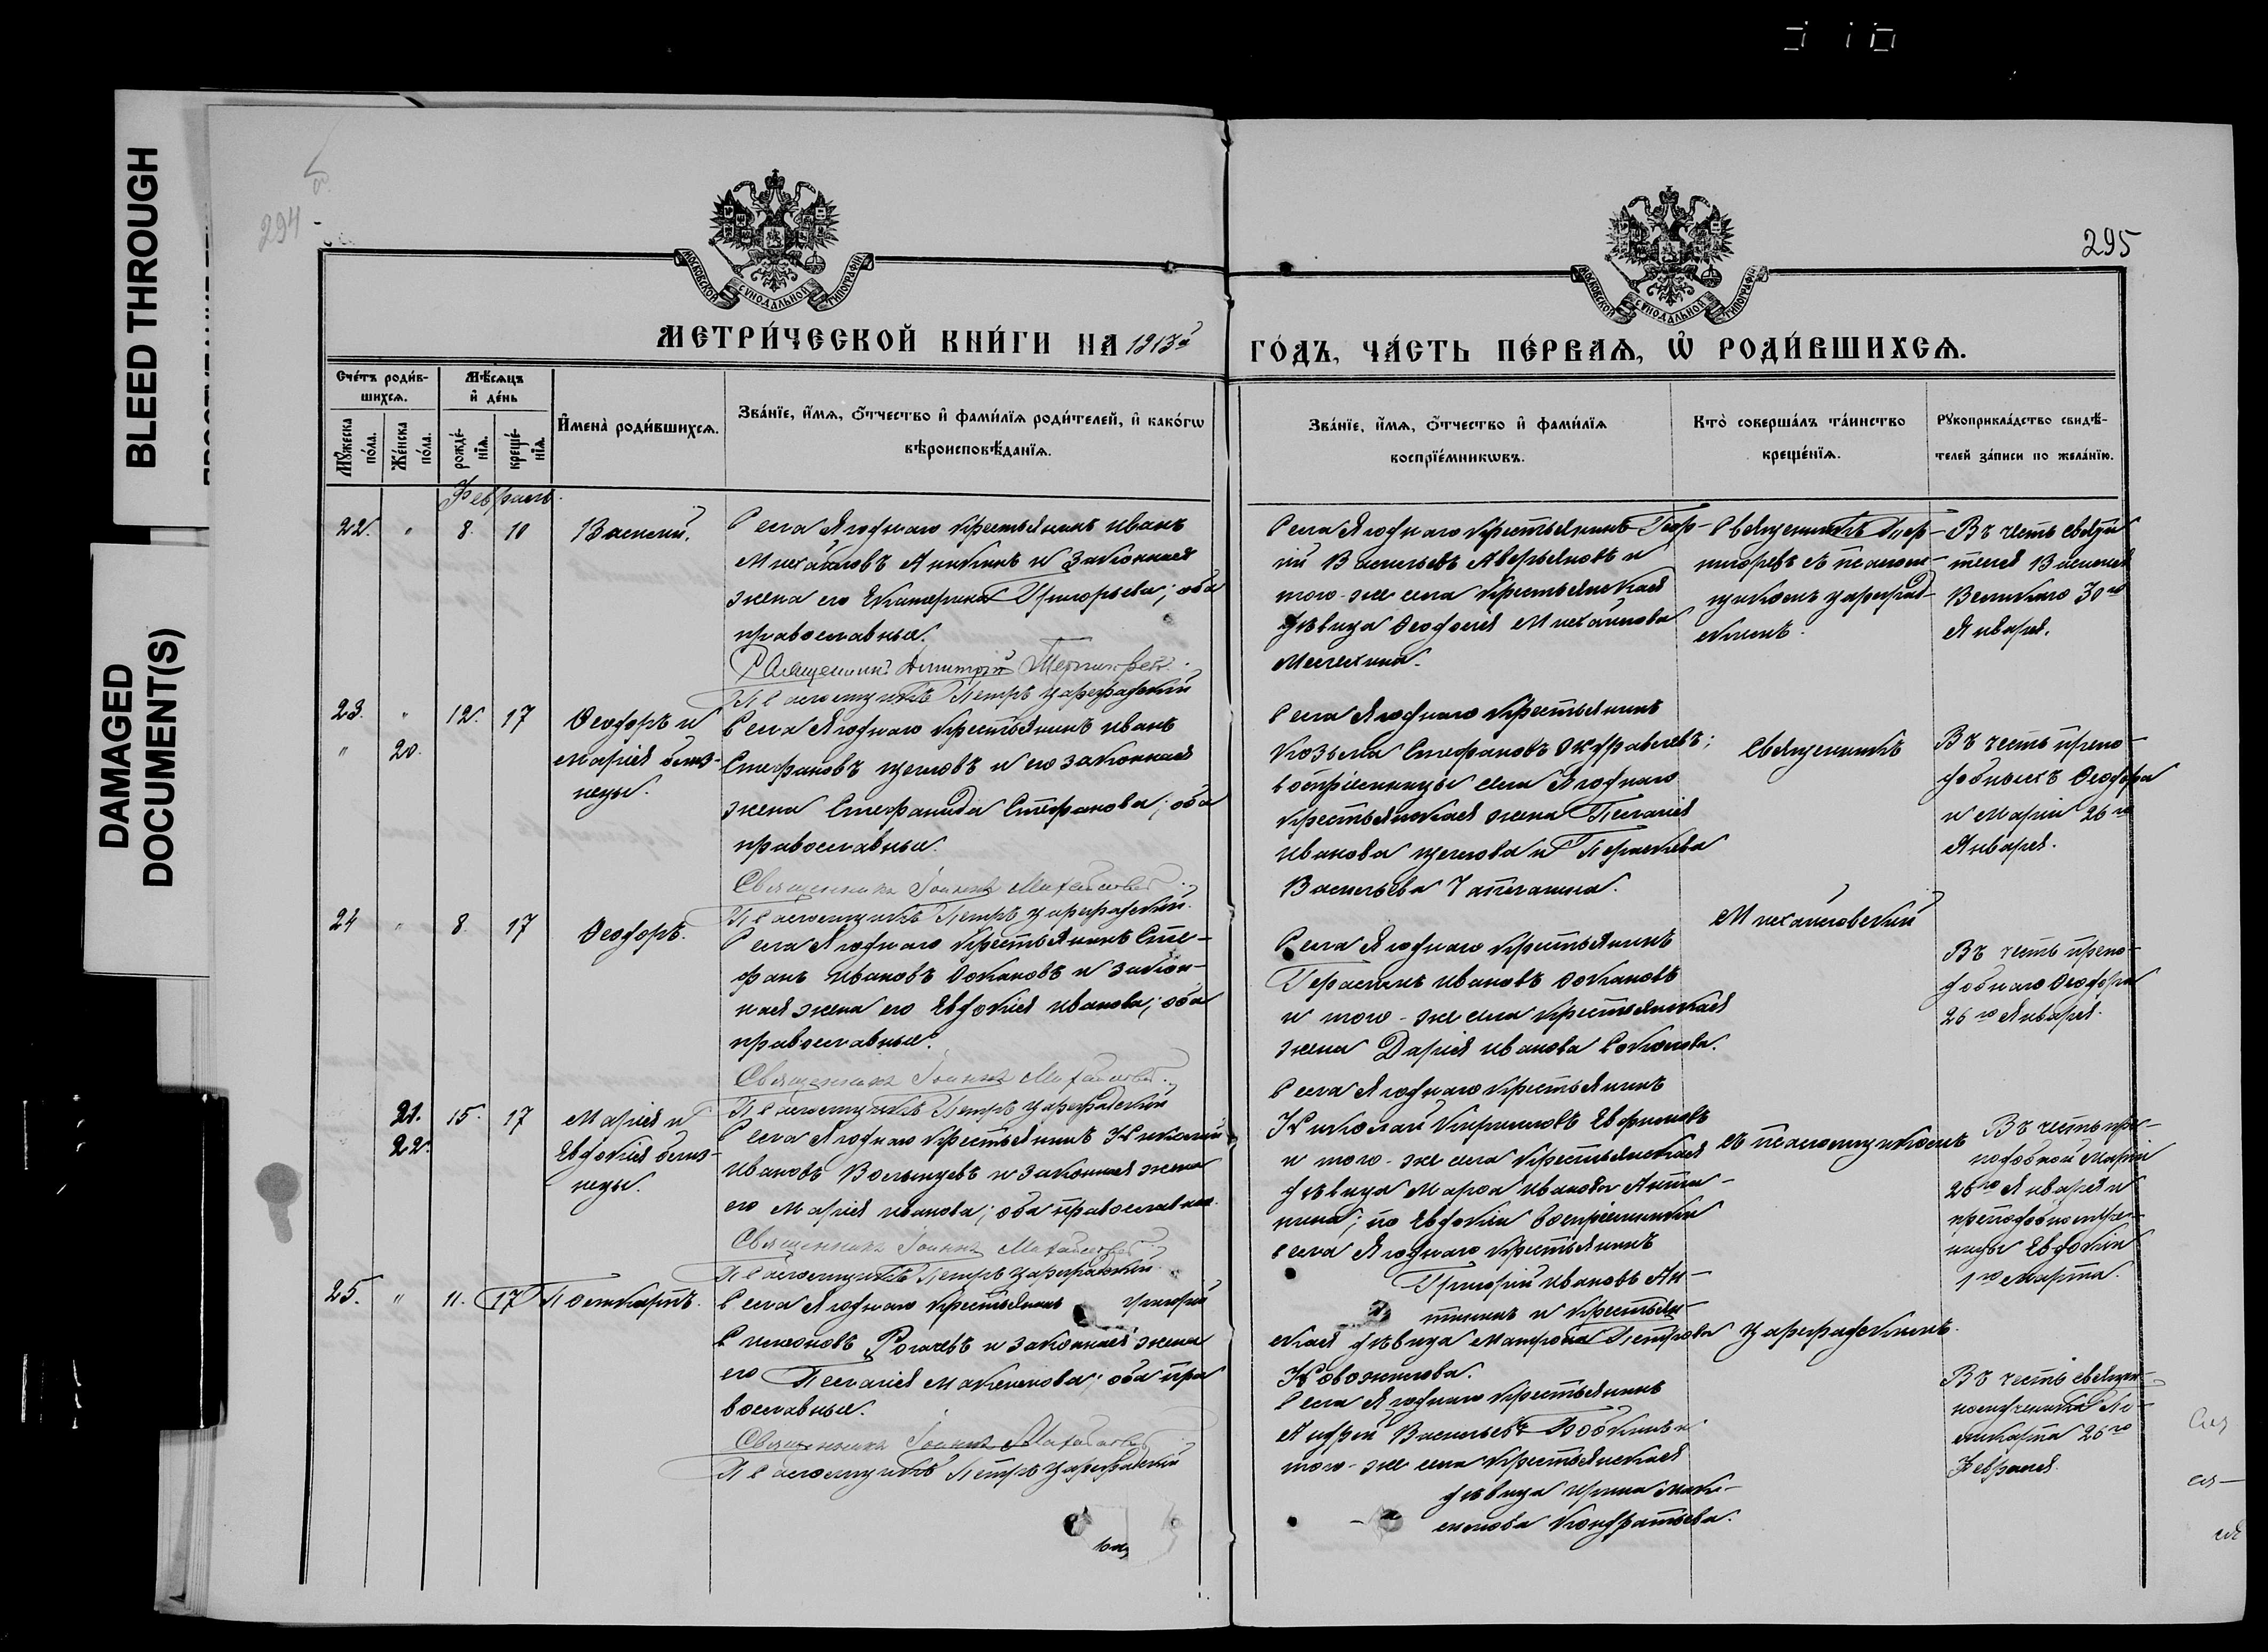 BLEED THROUGH
DAMAGED
DOCUMENT(S)
294
295
МОСКОВСКОЙ СѴНОДАЛЬНОЙ ТИПОГРАФІИ
МОСКОВСКОЙ СѴНОДАЛЬНОЙ ТИПОГРАФІИ
МЕТРИ́ЧЕСКОЙ КНИ́ГИ НА 1913й
ГО́ДЪ, ЧА́СТЬ ПЕ́РВАѦ, Ѡ҆ РОДИ́ВШИХСѦ.
Сче́тъ роди́в-
шихсѧ.
Мꙋ́жеска по́ла.
Же́нска по́ла.
Мѣ́сѧцъ
и҆ де́нь
рожде́-
нїѧ.
креще́-
нїѧ.
И҆мена̀ роди́вшихсѧ.
Зва́нїе, и҆́мѧ, ѻ҆́тчество и҆ фами́лїѧ роди́телей, и҆ како́гѡ
вѣроисповѣ́данїѧ.
Зва́нїе, и҆́мѧ, ѻ҆́тчество и҆ фами́лїѧ
воспрїе́мникѡвъ.
Кто̀ соверша́лъ та́инство
креще́нїѧ.
Рꙋкоприкла́дство свидѣ́-
телей за́писи по жела́нїю.
Февраль.
22. " 8. 10 Василій.
Села Ягоднаго крестьянинъ Иванъ
Михайловъ Аникинъ и законная
жена его Екатерина Григорьева; оба
православные.
Священникъ Димитрій
Псаломщикъ Петръ Цареградскій
Села Ягоднаго крестьянинъ
Васильевъ Аверьяновъ и
того-же села крестьянская
дѣвица Ѳеодосія Михайлова
Священникъ
съ псалом-
щикомъ Цареград-
скимъ.
Въ честь святи
теля Василія
Великаго 30го
Января.
23. " 12. 17 Ѳеодоръ и
" 20. Марія близ-
нецы.
Села Ягоднаго крестьянинъ Иванъ
Стефановъ Щегловъ и его законная
жена Стефанида Стефанова; оба
православные.
Священникъ Іоаннъ Михайловскій
Псаломщикъ Петръ Цареградскій
Села Ягоднаго крестьянинъ
Козьма Стефановъ Журавлевъ;
воспріемницы села Ягоднаго
крестьянская жена Пелагія
Иванова Щеглова и Параскева
Васильева
Священникъ
Михайловскій
Въ честь препо-
добныхъ Ѳеодора
и Маріи 26го
Января.
24 " 8. 17 Ѳеодоръ.
Села Ягоднаго крестьянинъ Сте-
фанъ Ивановъ и закон-
ная жена его Евдокія Иванова; оба
православные.
Священникъ Іоаннъ Михайловскій
Псаломщикъ Петръ Цареградскій
Села Ягоднаго крестьянинъ
Герасимъ Ивановъ
и того-же села крестьянская
жена Дарія Иванова
Въ честь препо-
добнаго Ѳеодора
26го Января.
21. 15. 17 Марія и
22. Евдокія близ-
нецы.
Села Ягоднаго крестьянинъ Николай
Ивановъ Волынцевъ и законная жена
его Марія Иванова; оба православные.
Священникъ Іоаннъ Михайловскій
Псаломщикъ Петръ Цареградскій
Села Ягоднаго крестьянинъ
Николай Кирилловъ Ефремовъ
и того-же села крестьянская
дѣвица Марѳа Иванова
по Евдокіи воспріемники
села Ягоднаго крестьянинъ
Григорій Ивановъ
и крестьян-
ская дѣвица Матрона Петрова
Новожилова.
съ псаломщикомъ
Цареградскимъ.
Въ честь пре-
подобной Маріи
26го Января и
преподобномуче-
ницы Евдокіи
1го Марта.
25. " 11. 17 Поликарпъ.
Села Ягоднаго крестьянинъ Григорій
Рогачевъ и законная жена
его Пелагія Максимова; оба пра
вославные.
Священникъ Іоаннъ Михайловскій
Псаломщикъ Петръ Цареградскій
Села Ягоднаго крестьянинъ
Андрей Васильевъ Бобкинъ и
того-же села крестьянская
дѣвица Ирина Макси-
мова Кондратьева.
Въ честь священ-
номученика По-
ликарпа 26го
Февраля.